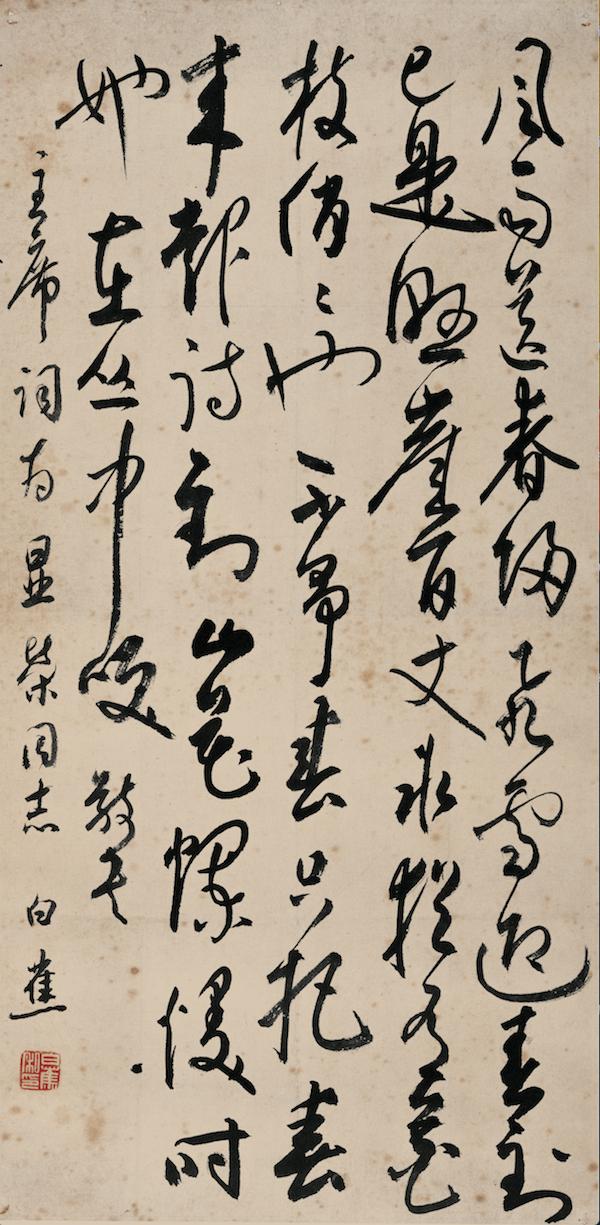 风雨送春归飞雪迎春到
已是悬崖百丈冰犹有花
枝俏〻也不争春只把春
来报待到山花烂漫时
她在丛中咲 敬录
主席词为显荣同志 白蕉
白蕉私印